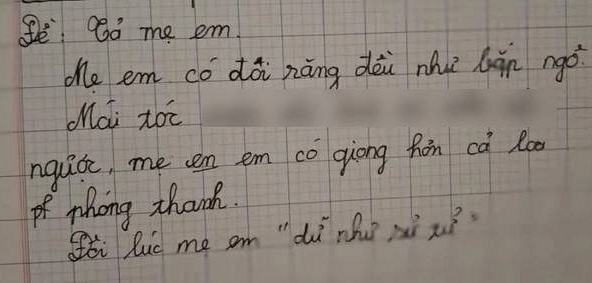 Đề: Tả mẹ em.
Mẹ em có đôi răng đều như bắp ngô.
Mái tóc
ngược, mẹ em em có giọng hơn cả loa
phóng thanh.
Đôi lúc mẹ em "dữ như sư tử"